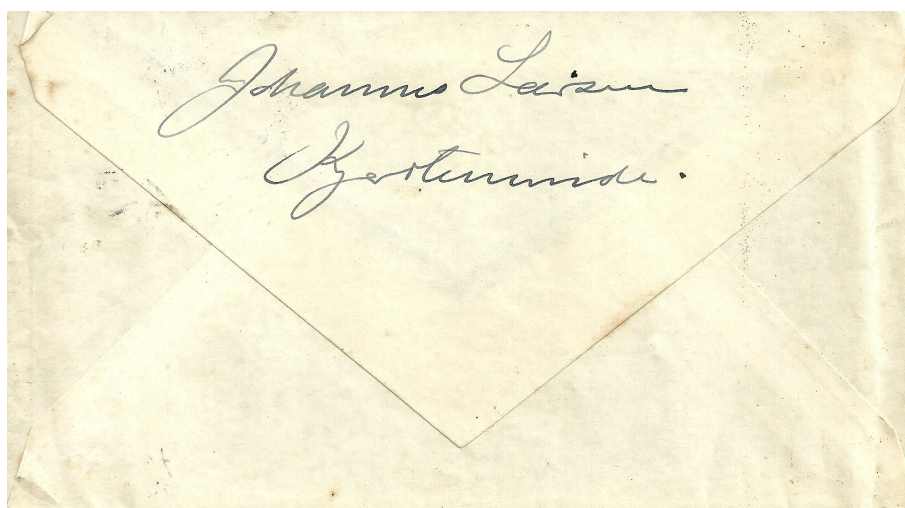 Johannes Larsen
Kjerteminde.